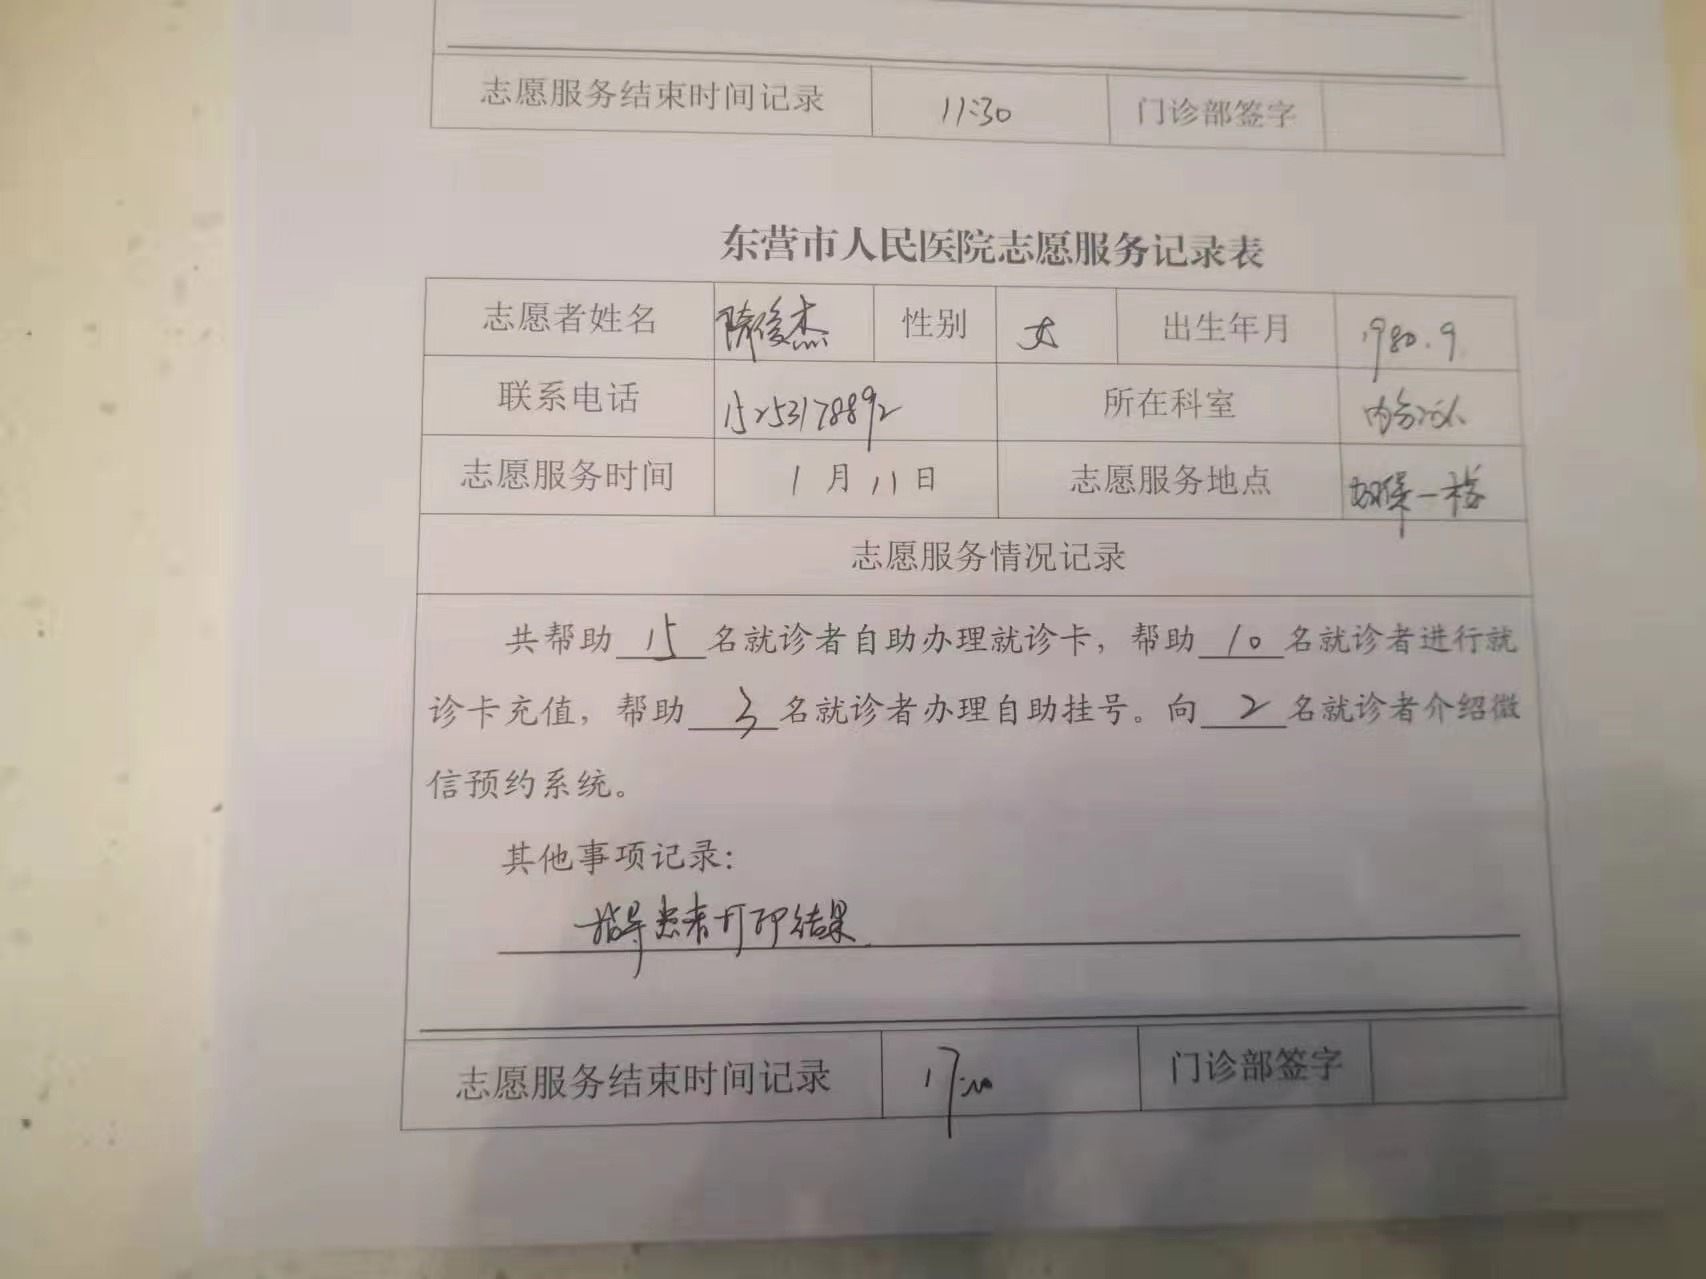 志愿服务结束时间记录 11:30 门诊部签字
东营市人民医院志愿服务记录表
志愿者姓名 隋俊杰 性别 女 出生年月 1980.9
联系电话 15253178892 所在科室 内分泌
志愿服务时间 1月11日 志愿服务地点 妇保一楼
志愿服务情况记录
共帮助 15 名就诊者自助办理就诊卡，帮助 10 名就诊者进行就
诊卡充值，帮助 3 名就诊者办理自助挂号。向 2 名就诊者介绍微
信预约系统。
其他事项记录：
指导患者打印结果
志愿服务结束时间记录 17:00 门诊部签字